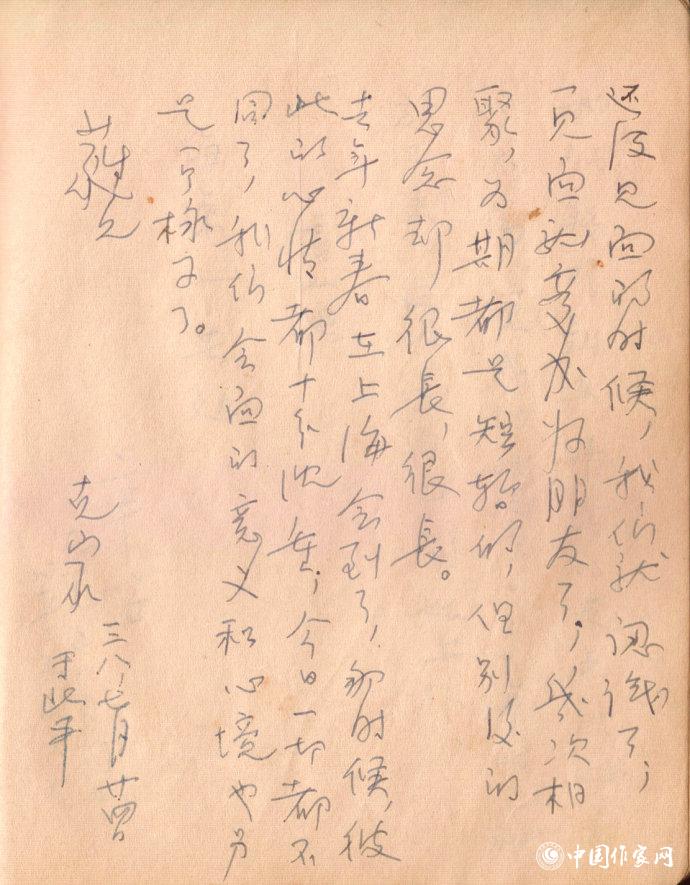 还没见面的时候，我们就認識了，
一见面就变成好朋友了，幾次相
聚，为期都是短暂的，但别後的
思念却很長，很長。
去年新春在上海会到了，那时候，彼
此的心情都十分沈重，今日一切都不
同了，我们会面的意义和心境也另
是一个样子了。
兄
克家
三八，七月廿四日
于北平
中国作家网